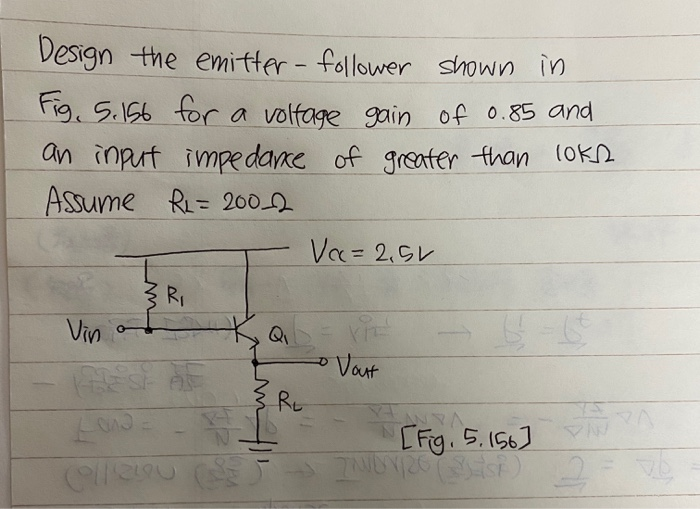 Design the emitter - follower shown in
Fig. 5.156 for a voltage gain of 0.85 and
an input impedance of greater than 10KΩ
Assume RL = 200Ω
Vcc = 2.5V
R1
Vin
Q1
Vout
RL
[Fig. 5.156]